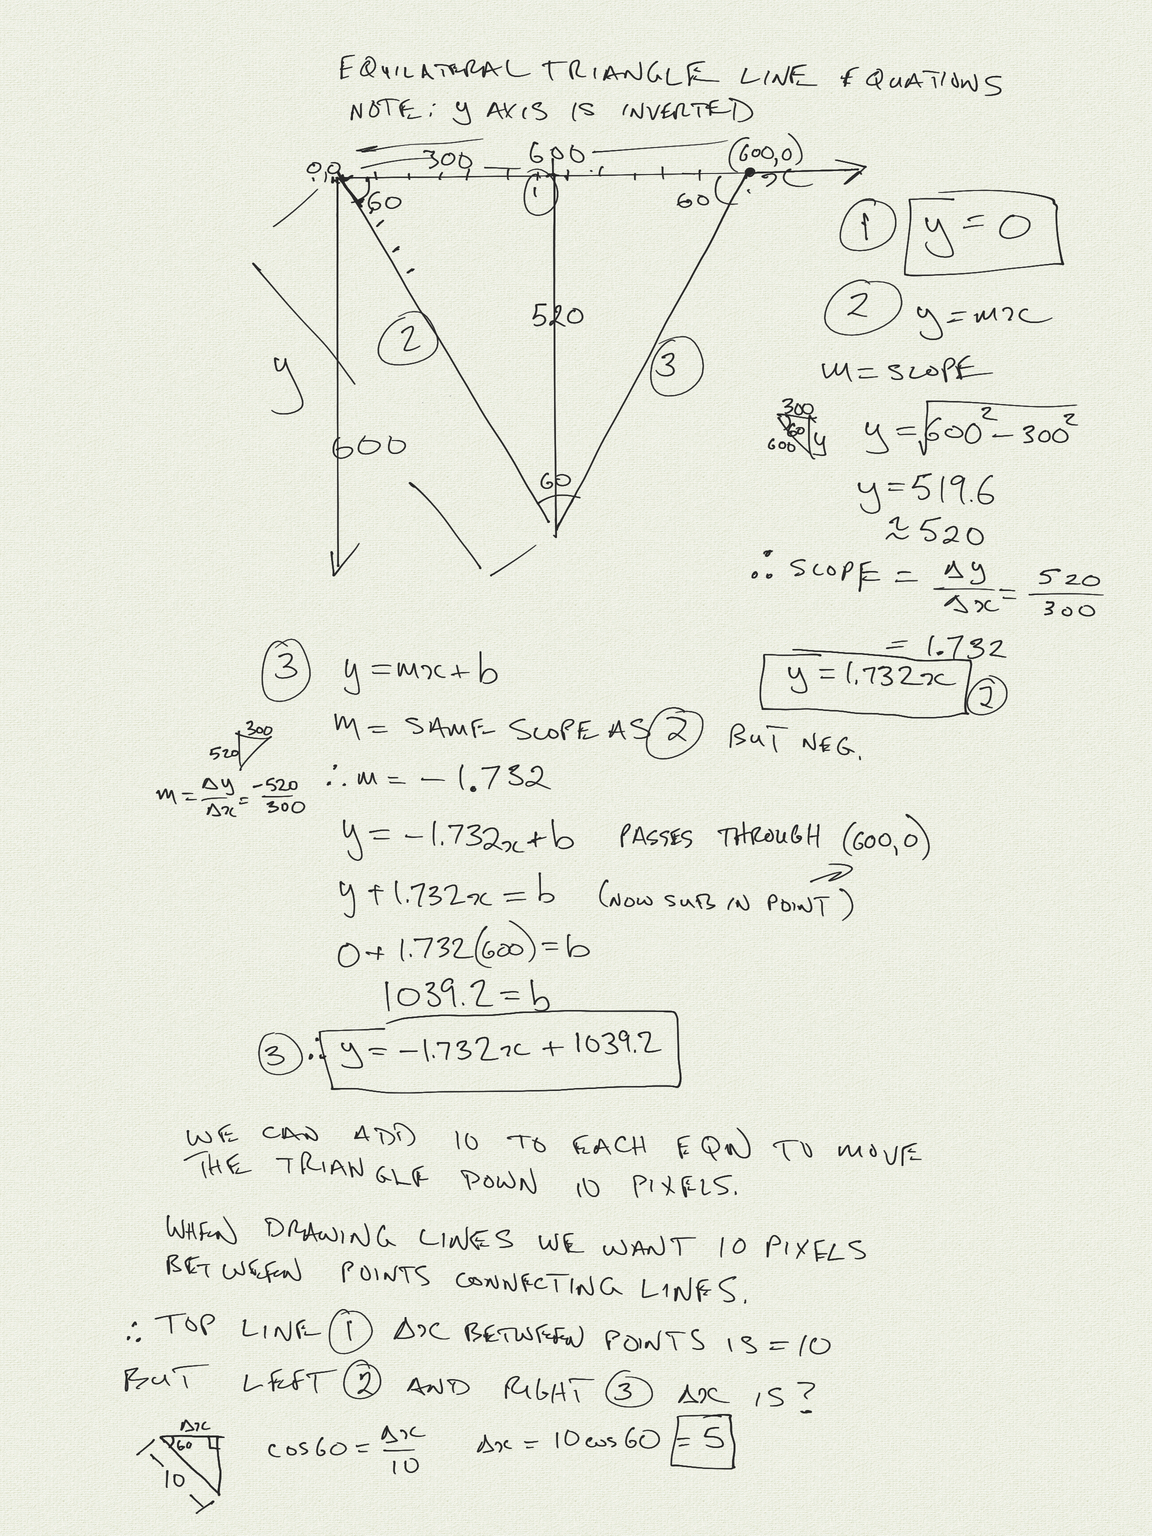 EQUILATERAL TRIANGLE LINE EQUATIONS
NOTE: y AXIS IS INVERTED
0,0 300 600 (600,0)
60 1 60 x
1 y = 0
2 y = mx
520
2 3
m = SLOPE
y
300
60
600 y
y = √600² - 300²
600
60
y = 519.6
≈ 520
∴ SLOPE = Δy/Δx = 520/300
= 1.732
y = 1.732x 2
3 y = mx + b
m = SAME SLOPE AS 2 BUT NEG.
300
520
m = Δy/Δx = -520/300
∴ m = -1.732
y = -1.732x + b PASSES THROUGH (600,0)
y + 1.732x = b (NOW SUB IN POINT)
0 + 1.732(600) = b
1039.2 = b
3 ∴ y = -1.732x + 1039.2
WE CAN ADD 10 TO EACH EQN TO MOVE
THE TRIANGLE DOWN 10 PIXELS.
WHEN DRAWING LINES WE WANT 10 PIXELS
BETWEEN POINTS CONNECTING LINES.
∴ TOP LINE 1 Δx BETWEEN POINTS IS = 10
BUT LEFT 2 AND RIGHT 3 Δx IS ?
Δx
60
10
cos60 = Δx/10 Δx = 10cos60 = 5